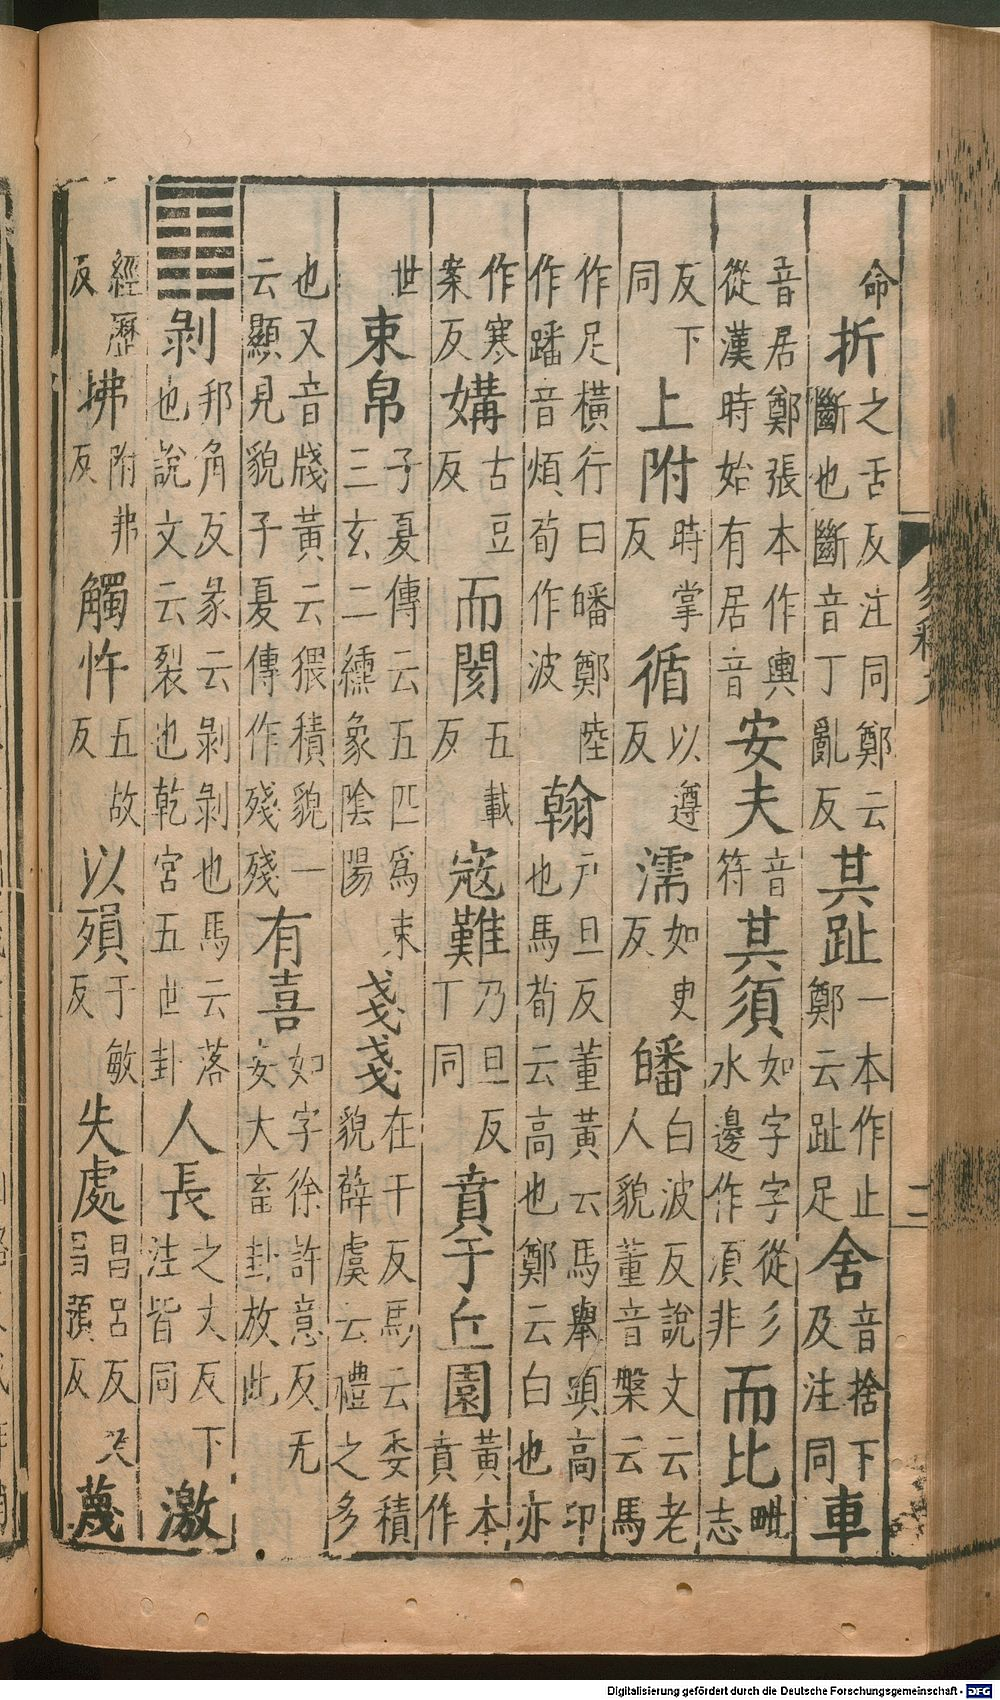 命折之舌反注同鄭云斷也斷音丁亂反其趾一本作止鄭云趾足舍音捨下及注同車
音居鄭張本作輿從漢時始有居音安夫音符其須如字字從彡水邊作湏非而比毗志
反下同上附時掌反循以遵反濡如臾反皤白波反說文云老人貌董音槃云馬
作足橫行曰皤鄭陸作蹯音煩荀作波翰戶旦反董黃云馬舉頭高卬也馬荀云高也鄭云白也亦
作寒案反媾古豆反而閡五載反寇難乃旦反丁同賁于丘園黃本賁作
世束帛子夏傳云五匹爲束三玄二纁象陰陽戔戔在干反馬云委積貌薛虞云禮之多
也又音牋黃云猥積貌一云顯見貌子夏傳作殘殘有喜如字徐許意反无妄大畜卦放此
䷖剝邦角反彖云剝剝也馬云落也說文云裂也乾宮五世卦人長之丈反下注皆同激
經歷反拂附弗反觸忤五故反以殞于敏反失處昌呂反又昌預反蔑
易釋文
二
Digitalisierung gefördert durch die Deutsche Forschungsgemeinschaft - DFG